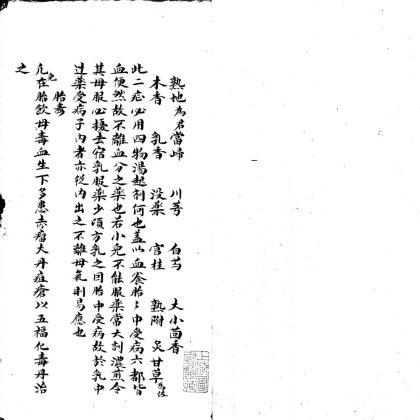 熟地為君 當歸 川芎 白芍 大小茴香
木香 乳香 没藥 官桂 熟附 炙甘草為佐
此二症必用四物湯起剤何也盖以血食胎〻中受病六都皆
血使然故不離血分之藥也若小兒不能服藥常大剤濃煎令
其母服必接去宿乳服藥少頃方乳之因胎中受病故於乳中
过藥受病于内者亦從内出之不離母氣則易應也
胎毒
凡兒在胎飲母毒血生下多患赤瘤大丹疽瘡以五福化毒丹治
之